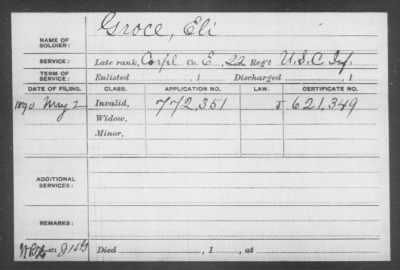 NAME OF SOLDIER: Groce, Eli
SERVICE: Late rank, Corp'l Co. E, 22 Reg't U.S.C Inf.
TERM OF SERVICE: Enlisted , 1 Discharged , 1
DATE OF FILING. CLASS. APPLICATION NO. LAW. CERTIFICATE NO.
1890 May 2 Invalid, 772,351 621,349
Widow,
Minor,
ADDITIONAL SERVICES:
REMARKS:
Died , 1 , at